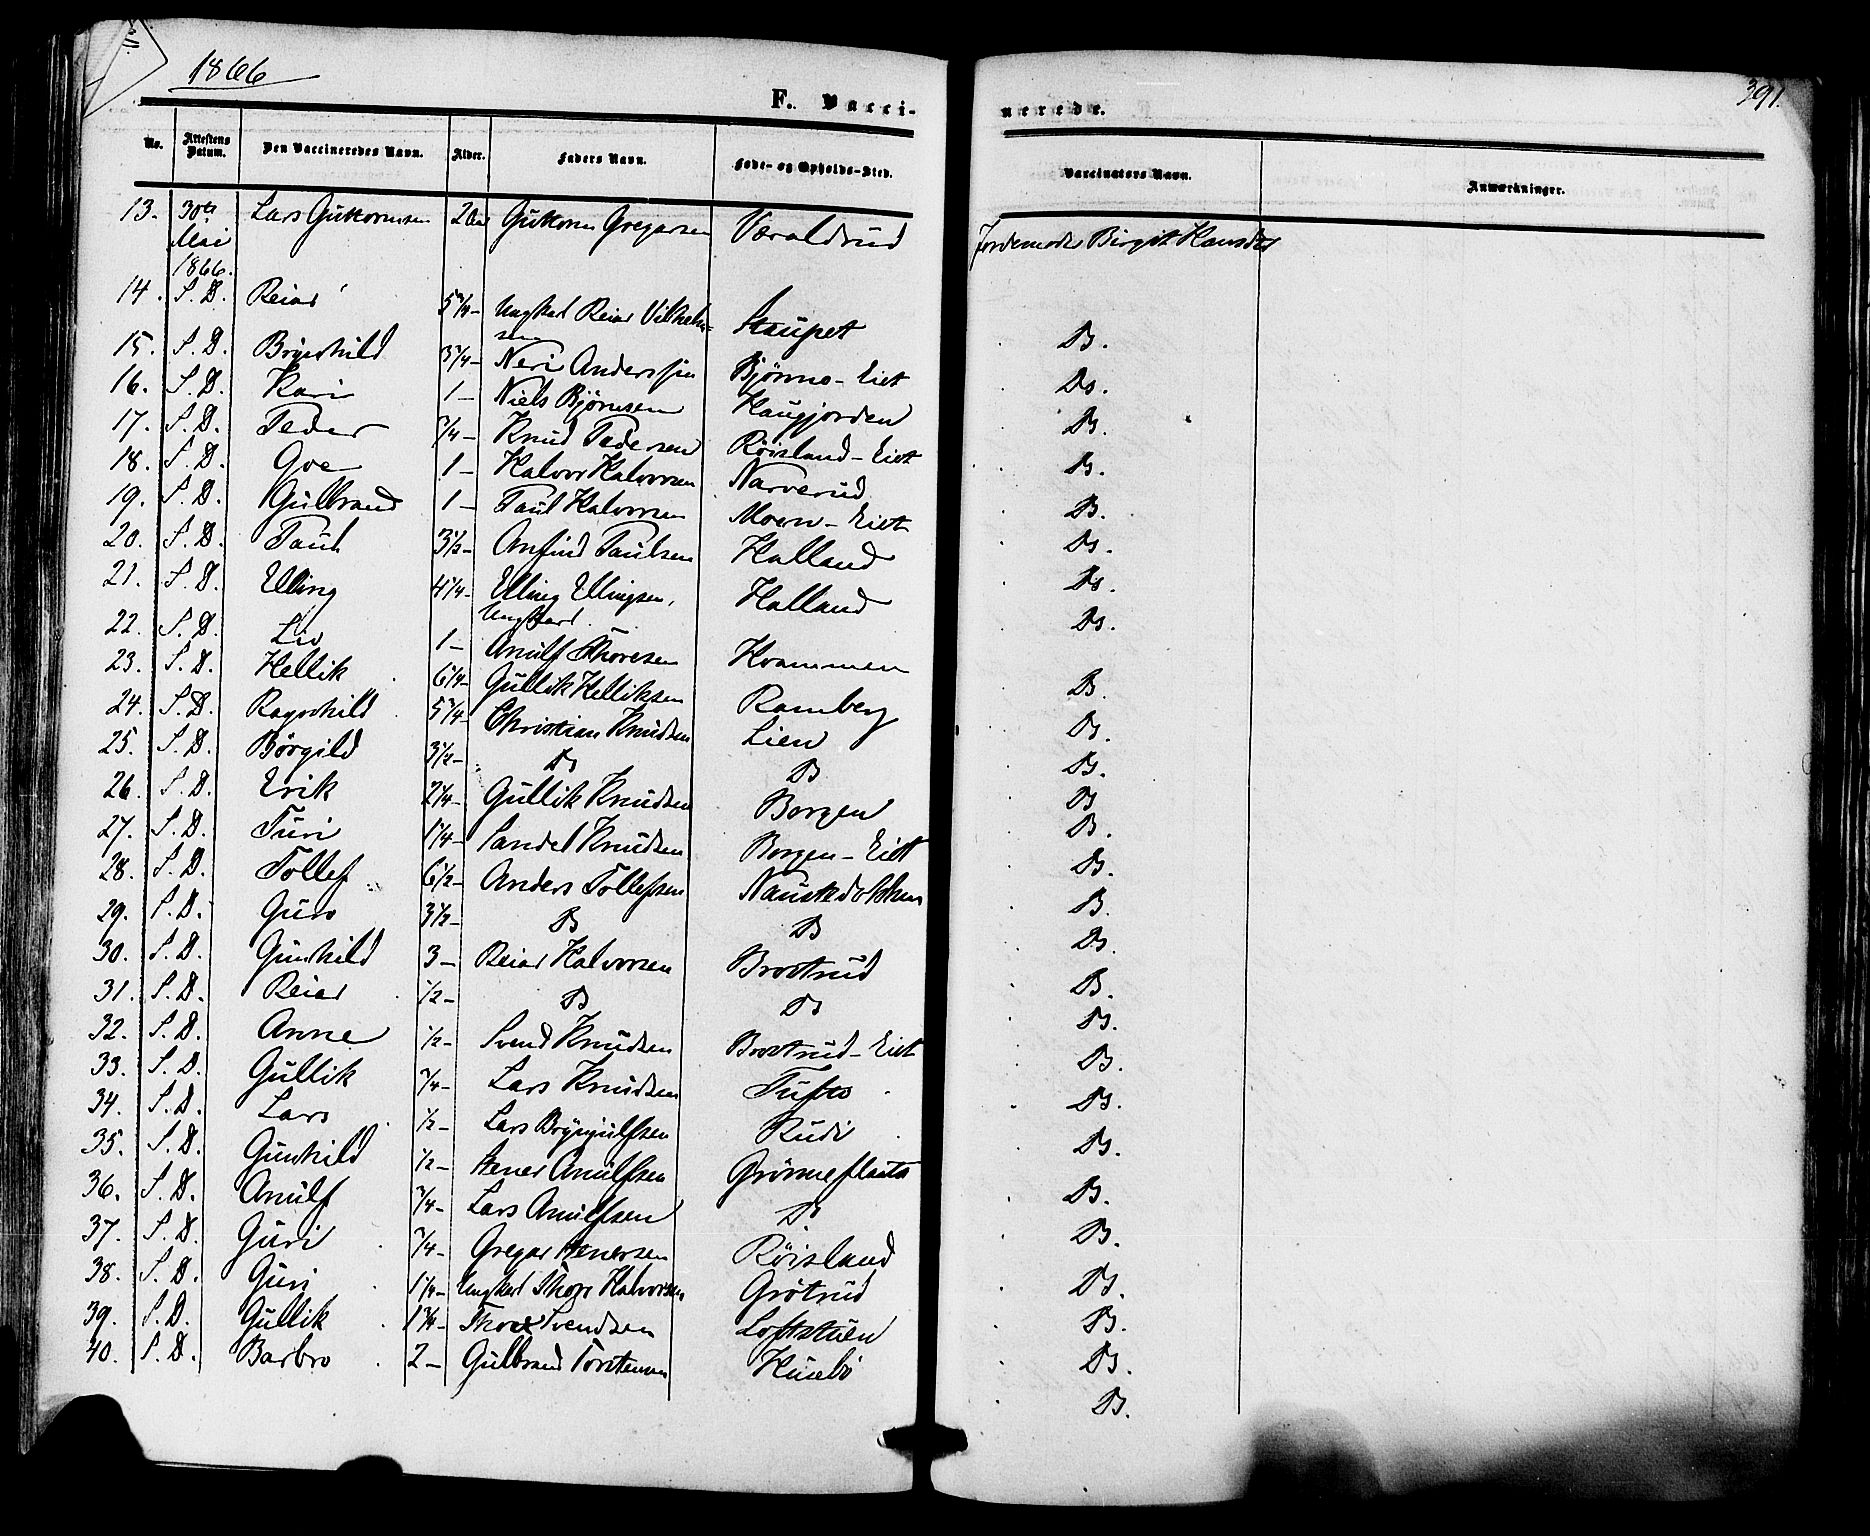 1866
391.
F. Vacci-
nerede.
No. Attestens Datum. Den Vaccineredes Navn. Alder. Faders Navn. Føde- og Opholds-Sted. Vaccinators Navn. Anmærkninger.
13. 30te Mai 1866. Lars Guttormsen 2 Guttorm Gregarsen Væraldrud Jordemoder Birgit Hansdtr
14. S. D. Reiar 5 3/4 - Ungkarl Reiar Vilhelmsen Staupet D.
15. S. D. Brynhild 3 3/4 - Neri Anderssen Bjørno-Eiet Do.
16. S. D. Kari 1 - Niels Bjørnsen Haugjorden D.
17. S. D. Peder 3/4 - Knud Pedersen Røisland-Eiet D.
18. S. D. Goe 1 - Halvor Halvorsen Narverud D.
19. S. D. Gulbrand 1 - Paul Halvorsen Moen-Eiet Do.
20. S. D. Paul 3 1/2 - Anfind Paulsen Halland Do.
21. S. D. Elling 4 1/4 - Elling Ellingsen, Ungkarl. Halland Do.
22. S. D. Liv 1 - Anulf Thoresen Hvammen D.
23. S. D. Hellik 6 1/4 - Gullik Helliksen Ramberg D.
24. S. D. Ragnhild 5 3/4 - Christian Knudsen Lien D.
25. S. D. Børgild 3 1/2 - Do Do Do
26. S. D. Erik 2 1/4 - Gullik Knudsen Borgen D.
27. S. D. Turi 1 1/4 - Sandel Knudsen Borgen-Eiet D.
28. S. D. Tollef 6 1/2 - Anders Tollefsen D.
29. S. D. Guro 3 1/2 - Do Do Do.
30. S. D. Gunhild 3 - Reiar Halvorsen Brotrud D.
31. S. D. Reiar 1/2 - Do Do D.
32. S. D. Anne 1/2 - Svend Knudsen Brotrud-Eiet D.
33. S. D. Gullik 3/4 - Lars Knudsen Tufto D.
34. S. D. Lars 1/2 - Lars Brynjulfsen Rudi D.
35. S. D. Gunhild 1/2 - Stener Anulfsen Grønneflaata D.
36. S. D. Anulf 3/4 - Lars Anulfsen Do D.
37. S. D. Guri 3/4 - Gregar Stenersen Røisland D.
38. S. D. Guri 1 1/4 - Ungkarl Thore Halvorsen Grøtrud D.
39. S. D. Gullik 1 3/4 - Thore Svendsen Loftstuen D.
40. S. D. Barbro 2 - Gulbrand Torstensen Husebø D.